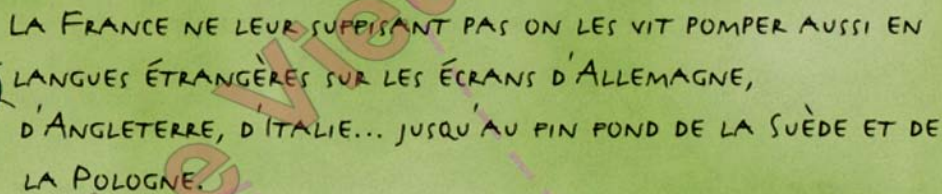 LA FRANCE NE LEUR SUFFISANT PAS ON LES VIT POMPER AUSSI EN
LANGUES ÉTRANGÈRES SUR LES ÉCRANS D'ALLEMAGNE,
D'ANGLETERRE, D'ITALIE... JUSQU'AU FIN FOND DE LA SUÈDE ET DE
LA POLOGNE.